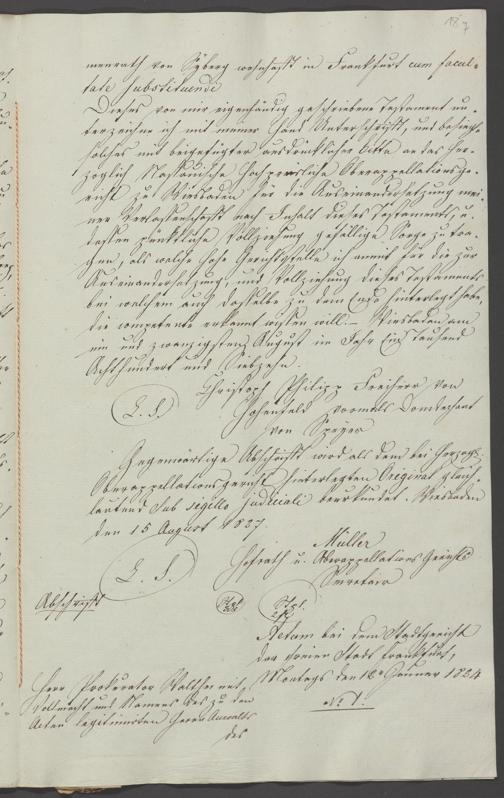 187
menrath von Syberg wohnhaft in Frankfurt cum facul-
tate substituendi
Dieses von mir eigenhändig geschriebene Testament un-
terzeichne ich mit meiner Hand Unterschrift, und besiegle
solches mit beigefügter ausdrücklicher Bitte an das Her-
zoglich Nassauische Hochpreisliche Oberappellationsge-
richt zu Wiesbaden für die Auseinandersetzung mei-
ner Verlassenschaft nach Inhalt dieses Testaments, u.
dessen pünktliche Vollziehung gefällige Sorge zu tra-
gen, als welche hohe Gerichtsstelle ich anmit für die zur
Auseinandersetzung und Vollziehung dieses Testaments
bei welchem auch dasselbe zu dem Ende hinterlegt habe,
die competente erkannt wissen will. – Wiesbaden am
ein und zwanzigsten August im Jahr Ein tausend
Achthundert und Siebzehn.
Christoph Philipp Freiherr von
(L. S.) Hohenfeld vormals Domdechant
von Speyer
Gegenwärtige Abschrift wird als dem bei Herzogl.
Oberappellationsgericht hinterlegten Original gleich-
lautend sub sigillo judiciali beurkundet. Wiesbaden
den 15 August 1827.
Müller
(L. S.) Hofrath u. Oberappellations Gerichts
Secretair
Abschrift
Actum bei dem Stadtgericht
der freien Stadt Frankfurt,
Montags den Januar 1834
No 1.
Herr Prokurator Walther mit
Vollmacht und Namens des zu den
Acten legitimirten Herrn Anwalts
des